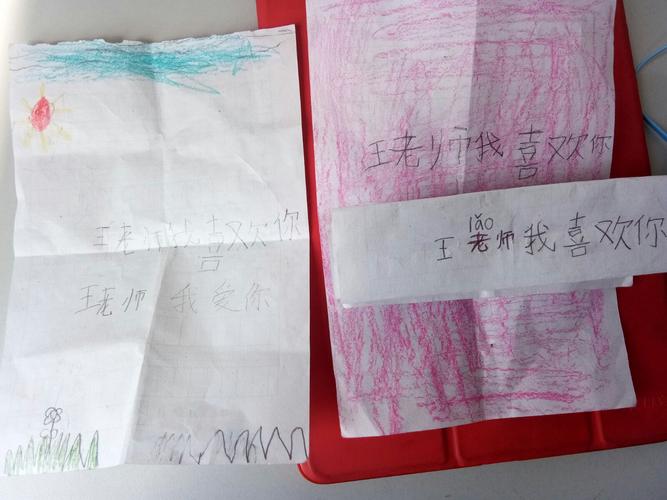 王老师我喜欢你
王老师我爱你
王老师我喜欢你
lǎo
王老师我喜欢你